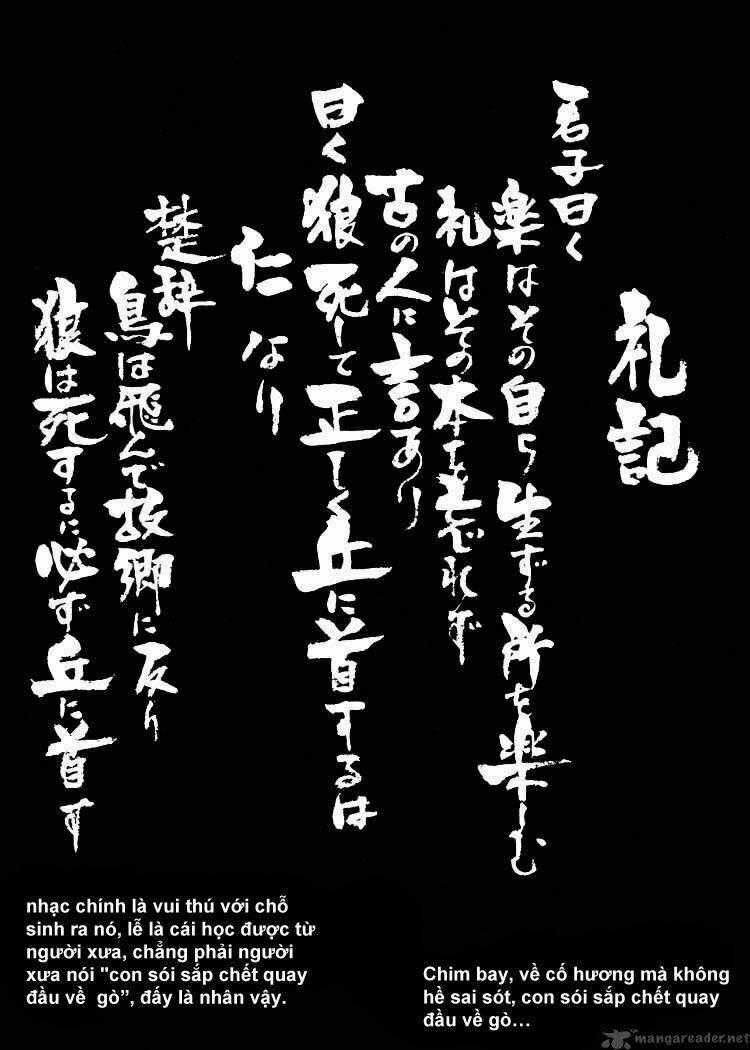 礼記
君子曰く
楽はその自ら生ずる所を楽しむ
礼はその本を忘れず
古の人に言あり
曰く狼死して正しく丘に首するは
仁なり
楚辞
鳥は飛んで故郷に反り
狼は死するに必ず丘に首す
nhạc chính là vui thú với chỗ
sinh ra nó, lễ là cái học được từ
người xưa, chẳng phải người
xưa nói "con sói sắp chết quay
đầu về gò”, đấy là nhân vậy.
Chim bay, về cố hương mà không
hề sai sót, con sói sắp chết quay
đầu về gò...
mangareader.net